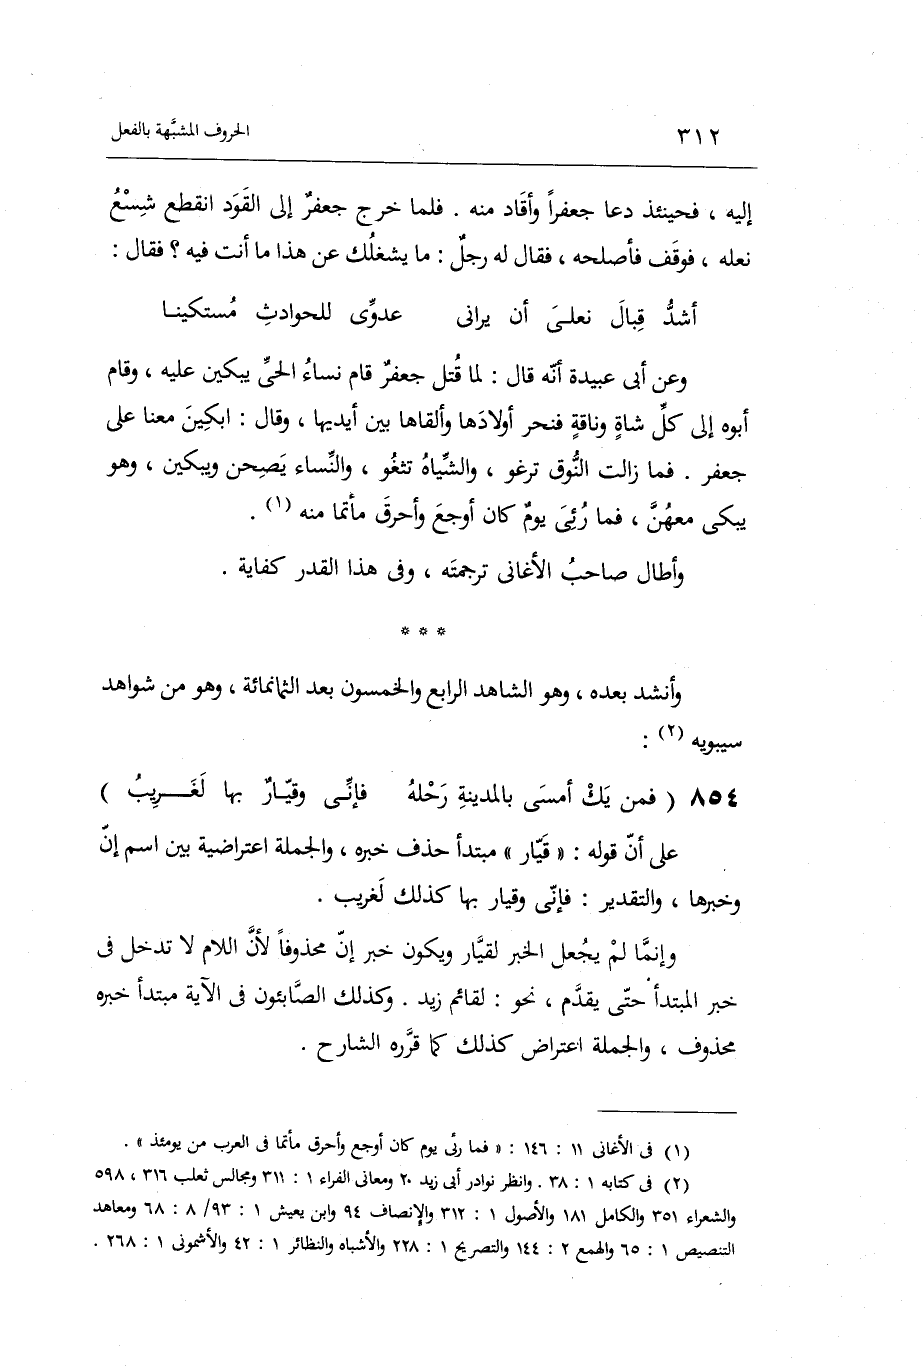 ٣١٢ الحروف المشبَّهة بالفعل
إليه ، فحينئذ دعا جعفراً وأقَاد منه . فلما خرج جعفرٌ إلى القَوَد انقطع شِسْعُ
نعله ، فوقَف فأصلحه ، فقال له رجلٌ : ما يشغلُك عن هذا ما أنت فيه ؟ فقال :
أشدُّ قِبالَ نعلـىَ أن يرانى عدوِّى للحوادثِ مُستكينـا
وعن أبى عبيدة أنّه قال : لما قُتل جعفرٌ قام نساءُ الحىِّ يبكين عليه ، وقام
أبوه إلى كلِّ شاةٍ وناقةٍ فنحر أولادَها وألقاها بين أيديها ، وقال : ابكِينَ معنا على
جعفر . فما زالت النُّوق ترغو ، والشِّياهُ تثغُو ، والنِّساء يَصِحن ويبكين ، وهو
يبكى معهُنَّ ، فما رُئِىَ يومٌ كان أوجعَ وأحرقَ مأتما منه (١) .
وأطال صاحبُ الأغانى ترجمتَه ، وفى هذا القدر كفاية .
* * *
وأنشد بعده ، وهو الشاهد الرابع والخمسون بعد الثمانمائة ، وهو من شواهد
سيبويه (٢) :
٨٥٤ ( فمن يَكْ أمسَى بالمدينةِ رَحْلهُ فإنِّـى وقيّـارٌ بها لَغَـــرِيبُ )
على أنّ قوله : « قَيّار » مبتدأ حذف خبره ، والجملة اعتراضية بين اسم إنّ
وخبرها ، والتقدير : فإنّى وقيار بها كذلك لَغريب .
وإنمَّا لمْ يجُعل الخبر لقيَّار ويكون خبر إنّ محذوفاً لأنَّ اللام لا تدخل فى
خبر المبتدأ حتّى يقدَّم ، نحو : لقائم زيد . وكذلك الصَّابئون فى الآية مبتدأ خبره
محذوف ، والجملة اعتراض كذلك كما قرَّره الشارح .
(١) فى الأغانى ١١ : ١٤٦ : « فما رئى يوم كان أوجع وأحرق مأتما فى العرب من يومئذ » .
(٢) فى كتابه ١ : ٣٨ . وانظر نوادر أبى زيد ٢٠ ومعانى الفراء ١ : ٣١١ ومجالس ثعلب ٣١٦ ، ٥٩٨
والشعراء ٣٥١ والكامل ١٨١ والأصول ١ : ٣١٢ والإنصاف ٩٤ وابن يعيش ١ : ٩٣/ ٨ : ٦٨ ومعاهد
التنصيص ١ : ٦٥ والهمع ٢ : ١٤٤ والتصريح ١ : ٢٢٨ والأشباه والنظائر ١ : ٤٢ والأشمونى ١ : ٢٦٨ .